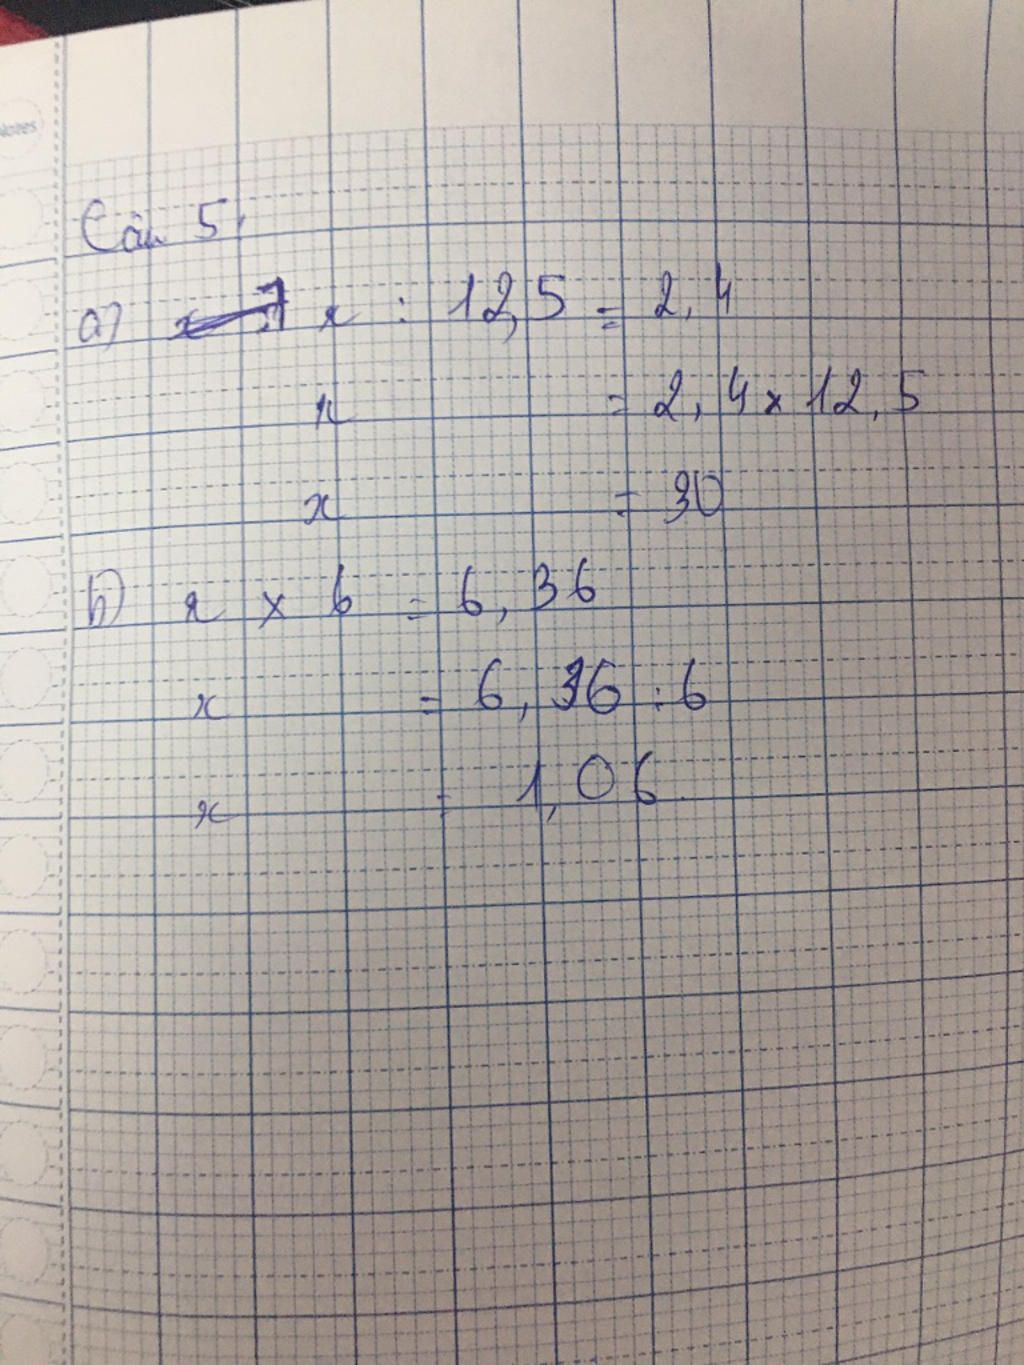 Notes
Câu 5:
a) x : 12,5 = 2,4
x = 2,4 x 12,5
x = 30
b) x x 6 = 6,36
x = 6,36 : 6
x = 1,06